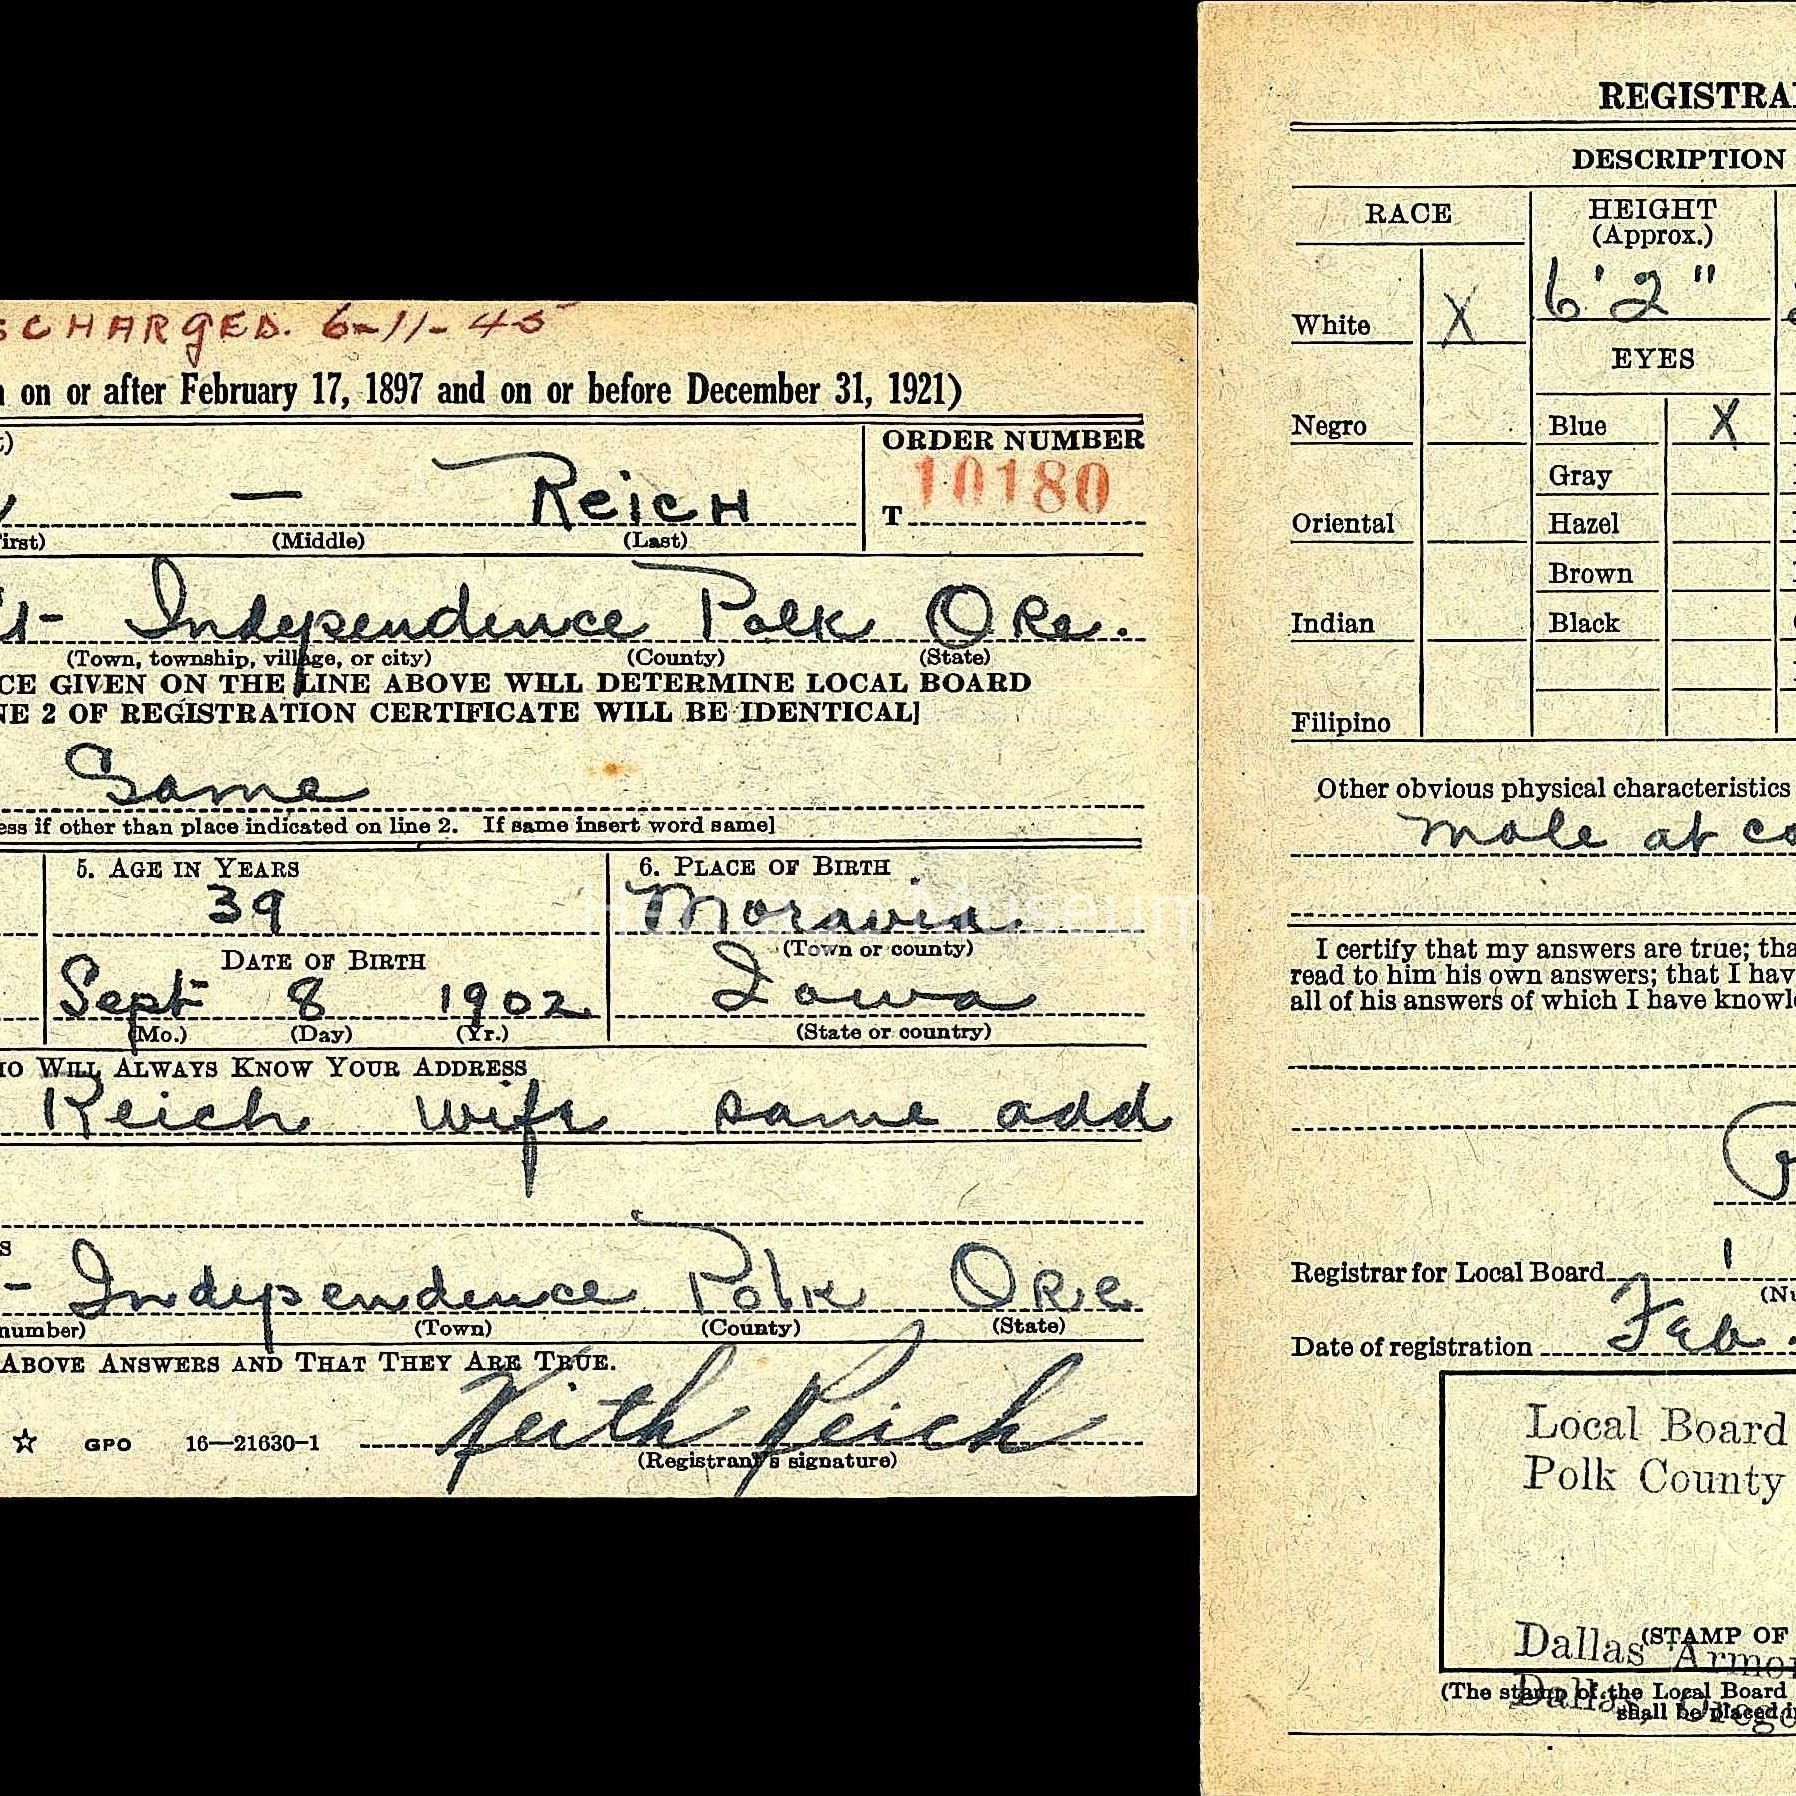 SCHARGED. 6-11-45
on or after February 17, 1897 and on or before December 31, 1921)
ORDER NUMBER
— Reich
T 10180
(Middle) (Last)
Independence Polk Ore.
(Town, township, village, or city) (County) (State)
CE GIVEN ON THE LINE ABOVE WILL DETERMINE LOCAL BOARD
NE 2 OF REGISTRATION CERTIFICATE WILL BE IDENTICAL]
Same
ess if other than place indicated on line 2. If same insert word same]
5. AGE IN YEARS
39
DATE OF BIRTH
Sept 8 1902
(Mo.) (Day) (Yr.)
6. PLACE OF BIRTH
Moravia
(Town or county)
Iowa
(State or country)
HO WILL ALWAYS KNOW YOUR ADDRESS
Reich wife same add
- Independence Polk Ore
number) (Town) (County) (State)
ABOVE ANSWERS AND THAT THEY ARE TRUE.
Keith Reich
☆ GPO 16—21630-1
(Registrant's signature)
REGISTRA
DESCRIPTION
RACE
HEIGHT
(Approx.)
6' 2"
White X
EYES
Negro
Blue X
Gray
Oriental
Hazel
Brown
Indian
Black
Filipino
Other obvious physical characteristics
mole at
I certify that my answers are true; tha
read to him his own answers; that I hav
all of his answers of which I have knowl
Registrar for Local Board 1
Date of registration Feb.
Local Board
Polk County
(STAMP OF
Dallas Armor
Dallas, Orego
(The stamp of the Local Board
shall be placed i